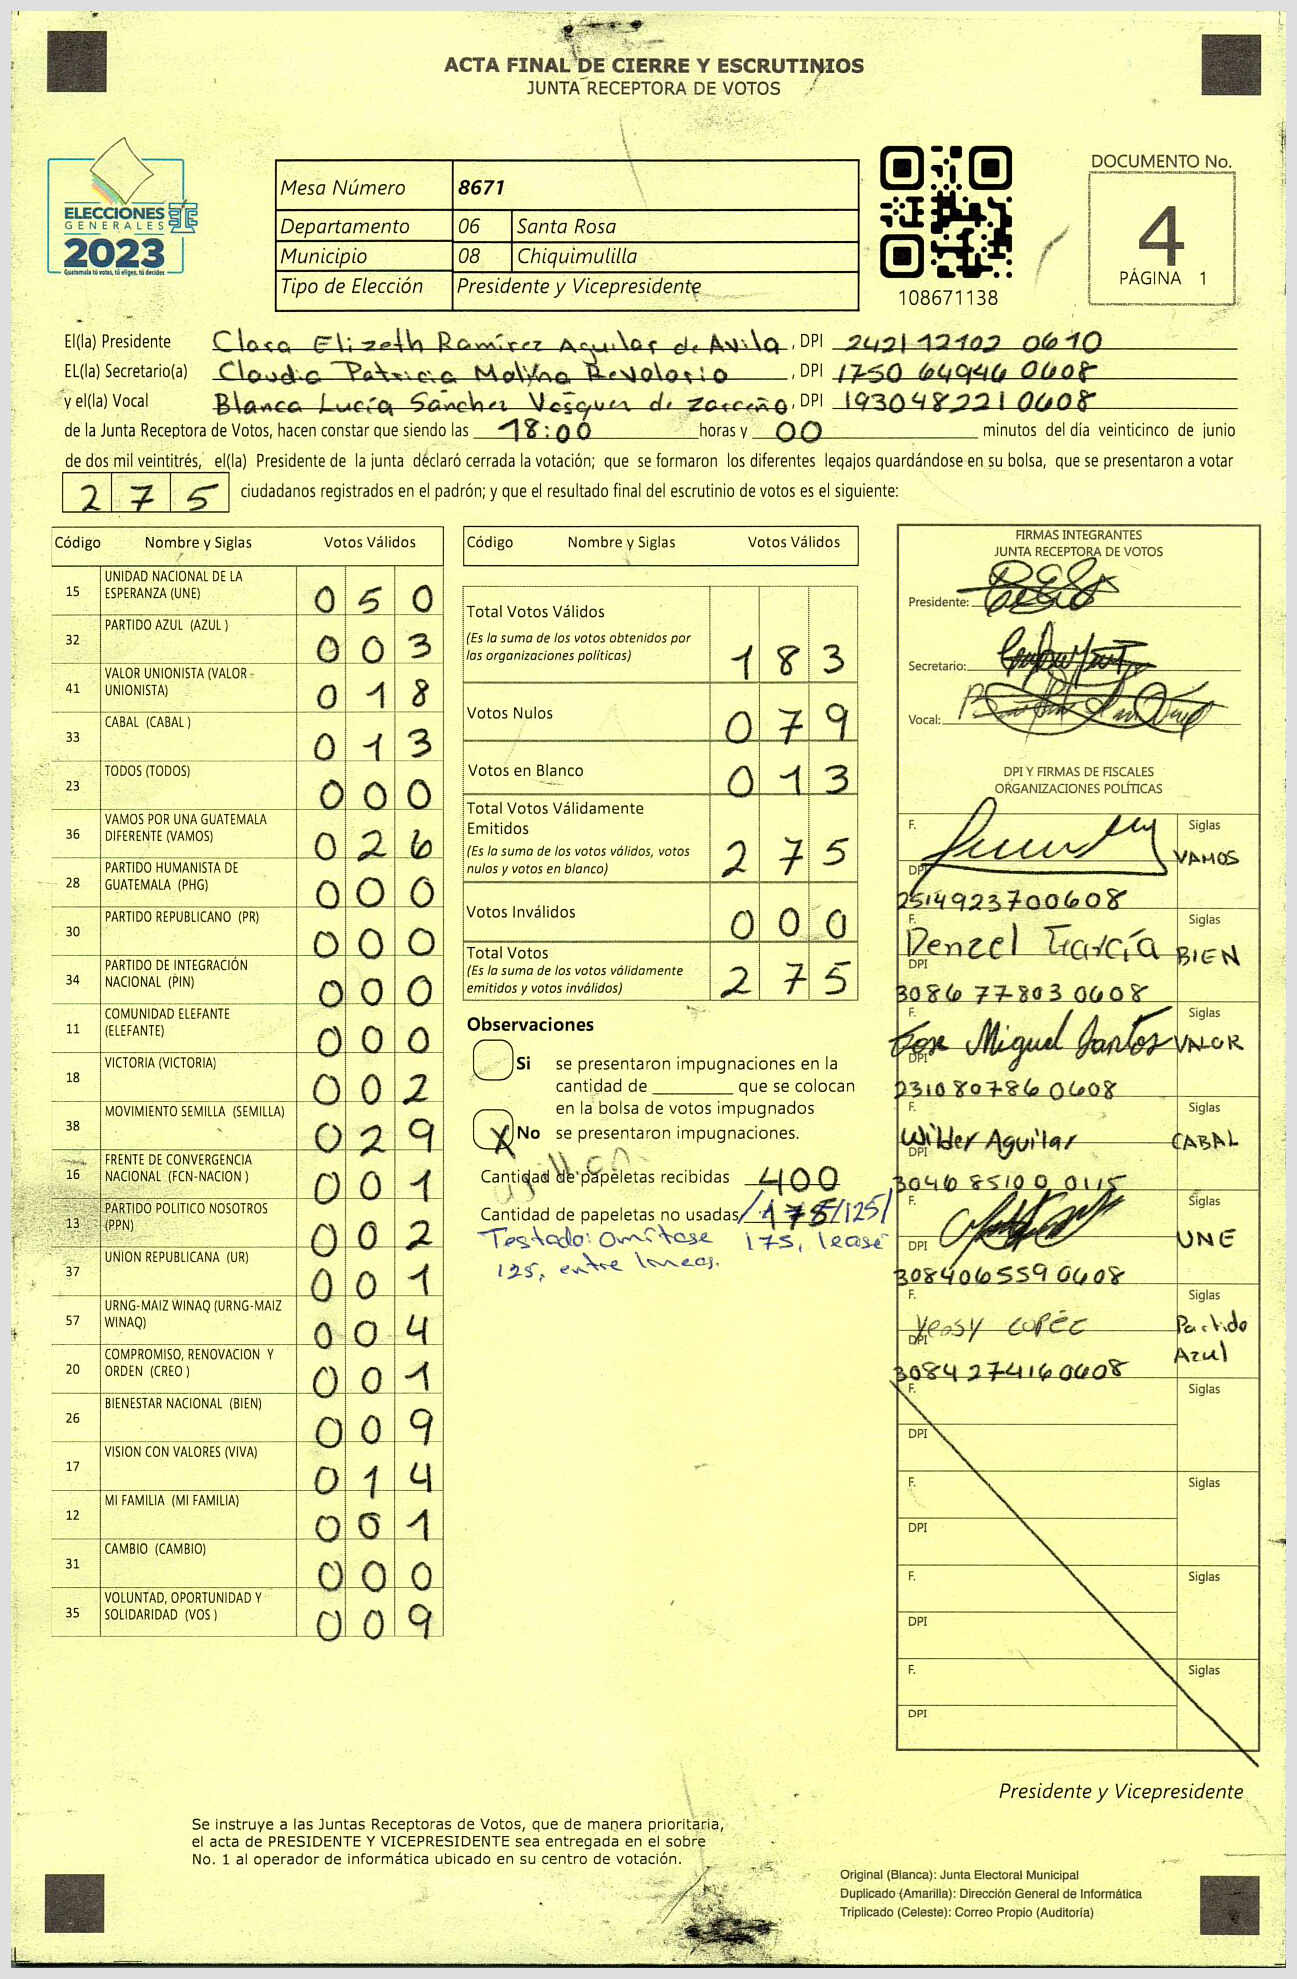 ACTA FINAL DE CIERRE Y ESCRUTINIOS
JUNTA RECEPTORA DE VOTOS
ELECCIONES
GENERALES
2023
Guatemala tú votas, tú eliges, tú decides
Mesa Número 8671
Departamento 06 Santa Rosa
Municipio 08 Chiquimulilla
Tipo de Elección Presidente y Vicepresidente
108671138
DOCUMENTO No.
4
PÁGINA 1
El(la) Presidente Clara Elizeth Ramírez Aguilar de Avila, DPI 2421 12102 0610
EL(la) Secretario(a) Claudia Patricia Molina Revolorio, DPI 1750 64946 0608
y el(la) Vocal Blanca Lucía Sánchez Vásquez de, DPI 1930482210608
de la Junta Receptora de Votos, hacen constar que siendo las 18:00 horas y 00 minutos del día veinticinco de junio
de dos mil veintitrés, el(la) Presidente de la junta declaró cerrada la votación; que se formaron los diferentes legajos quardándose en su bolsa, que se presentaron a votar
275 ciudadanos registrados en el padrón; y que el resultado final del escrutinio de votos es el siguiente:
Código Nombre y Siglas Votos Válidos
15 UNIDAD NACIONAL DE LA ESPERANZA (UNE) 050
32 PARTIDO AZUL (AZUL ) 003
41 VALOR UNIONISTA (VALOR - UNIONISTA) 018
33 CABAL (CABAL ) 013
23 TODOS (TODOS) 000
36 VAMOS POR UNA GUATEMALA DIFERENTE (VAMOS) 026
28 PARTIDO HUMANISTA DE GUATEMALA (PHG) 000
30 PARTIDO REPUBLICANO (PR) 000
34 PARTIDO DE INTEGRACIÓN NACIONAL (PIN) 000
11 COMUNIDAD ELEFANTE (ELEFANTE) 000
18 VICTORIA (VICTORIA) 002
38 MOVIMIENTO SEMILLA (SEMILLA) 029
16 FRENTE DE CONVERGENCIA NACIONAL (FCN-NACION ) 001
13 PARTIDO POLITICO NOSOTROS (PPN) 002
37 UNION REPUBLICANA (UR) 001
57 URNG-MAIZ WINAQ (URNG-MAIZ WINAQ) 004
20 COMPROMISO, RENOVACION Y ORDEN (CREO ) 001
26 BIENESTAR NACIONAL (BIEN) 009
17 VISION CON VALORES (VIVA) 014
12 MI FAMILIA (MI FAMILIA) 001
31 CAMBIO (CAMBIO) 000
35 VOLUNTAD, OPORTUNIDAD Y SOLIDARIDAD (VOS ) 009
Código Nombre y Siglas Votos Válidos
Total Votos Válidos 183
(Es la suma de los votos obtenidos por
las organizaciones políticas)
Votos Nulos 079
Votos en Blanco 013
Total Votos Válidamente
Emitidos 275
(Es la suma de los votos válidos, votos
nulos y votos en blanco)
Votos Inválidos 000
Total Votos 275
(Es la suma de los votos válidamente
emitidos y votos inválidos)
Observaciones
Si se presentaron impugnaciones en la
cantidad de ________ que se colocan
en la bolsa de votos impugnados
X No se presentaron impugnaciones.
Cantidad de papeletas recibidas 400
Cantidad de papeletas no usadas /175/125/
Testado: Omítase 175, lease
125, entre lineas.
FIRMAS INTEGRANTES
JUNTA RECEPTORA DE VOTOS
Presidente:
Secretario:
Vocal:
DPI Y FIRMAS DE FISCALES
ORGANIZACIONES POLÍTICAS
F. Siglas
DPI VAMOS
2514923700608
F. Denzel García Siglas
DPI BIEN
3086 77803 0608
F. Jose Miguel Santos Siglas
DPI VALOR
231080786 0608
F. Wilder Aguilar Siglas
DPI CABAL
3046 85100 0115
F. Siglas
DPI UNE
308406559 0608
F. Siglas
DPI Partido Azul
3084274160608
F. Siglas
DPI
F. Siglas
DPI
F. Siglas
DPI
F. Siglas
DPI
Presidente y Vicepresidente
Se instruye a las Juntas Receptoras de Votos, que de manera prioritaria,
el acta de PRESIDENTE Y VICEPRESIDENTE sea entregada en el sobre
No. 1 al operador de informática ubicado en su centro de votación.
Original (Blanca): Junta Electoral Municipal
Duplicado (Amarilla): Dirección General de Informática
Triplicado (Celeste): Correo Propio (Auditoría)